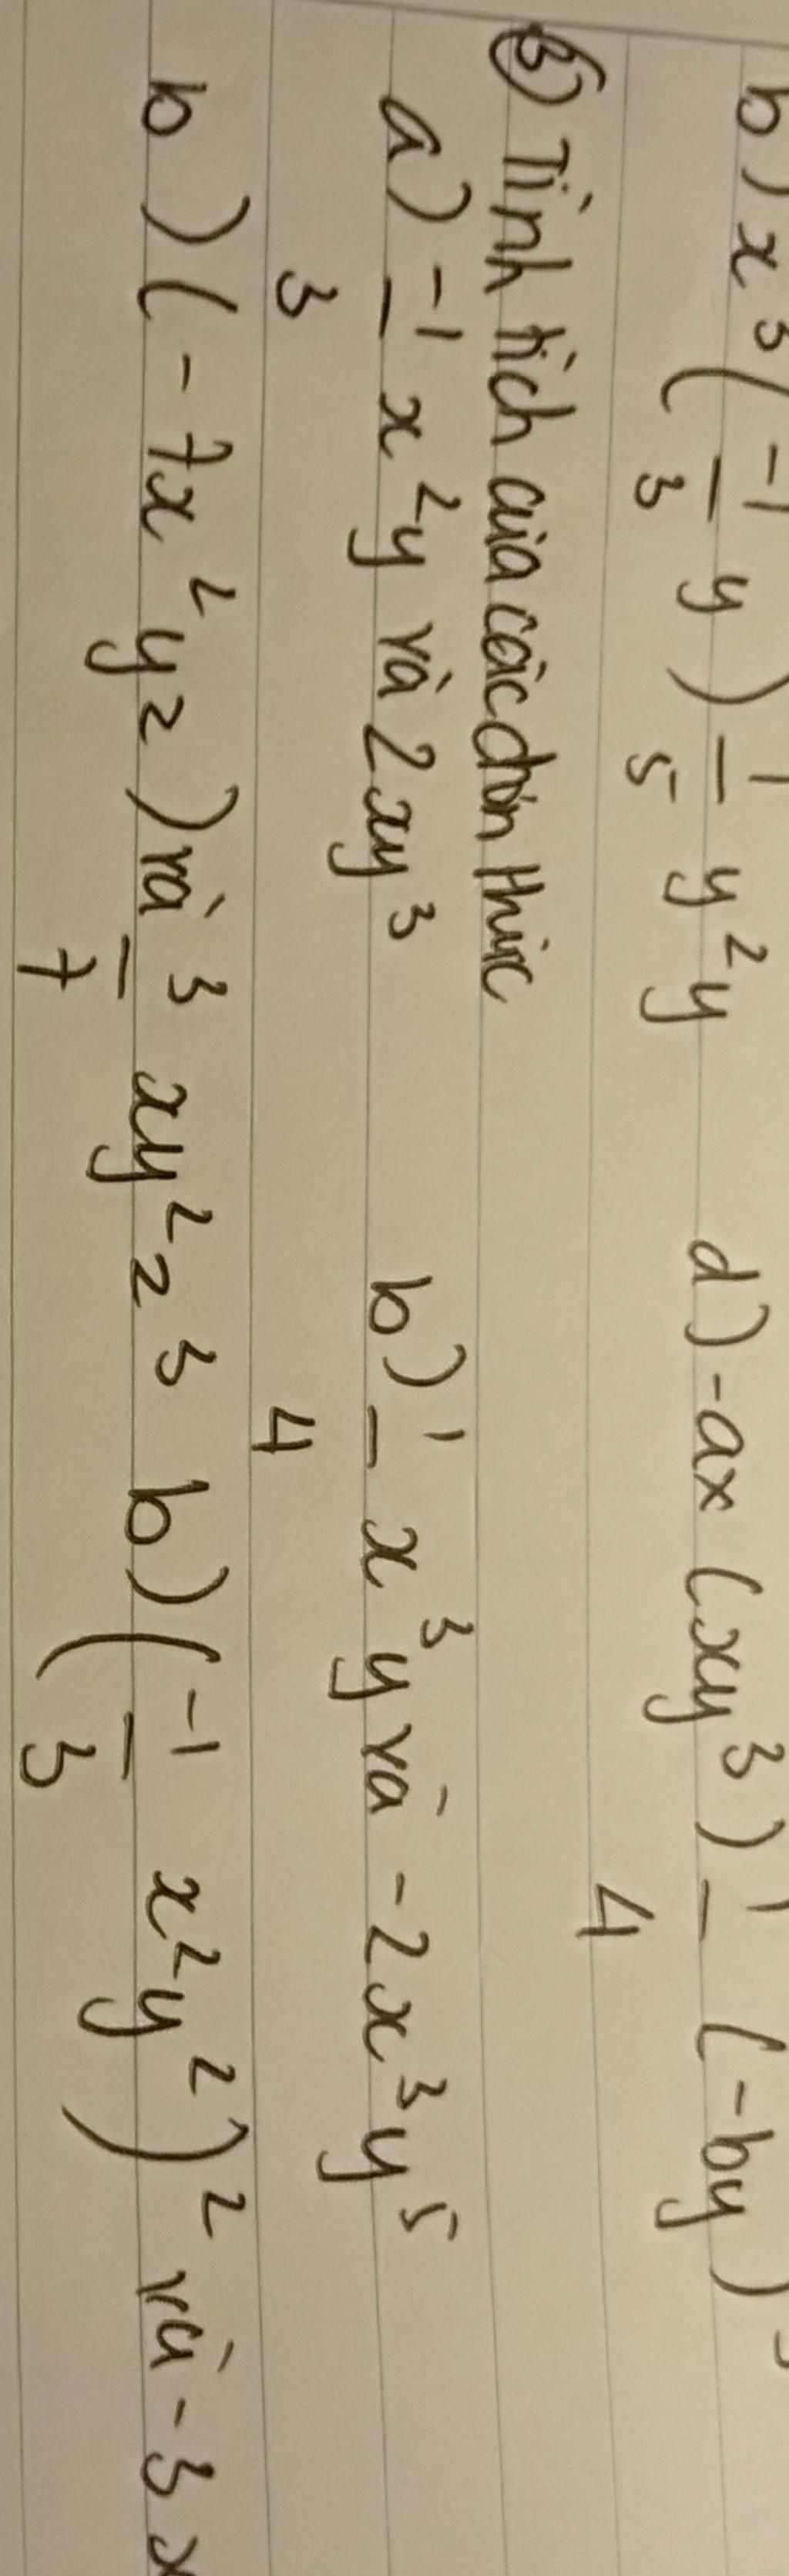 b) x³(-1/3 y) 1/5 y²y d) -ax (xy³) 1/4 (-by)³
③ Tình tích của các đơn thức
a) -1/3 x²y và 2xy³ b) 1/4 x³y và -2x³y⁵
b) (-7x²yz) và 3/7 xy²z³ b) (-1/3 x²y²)² và -3x